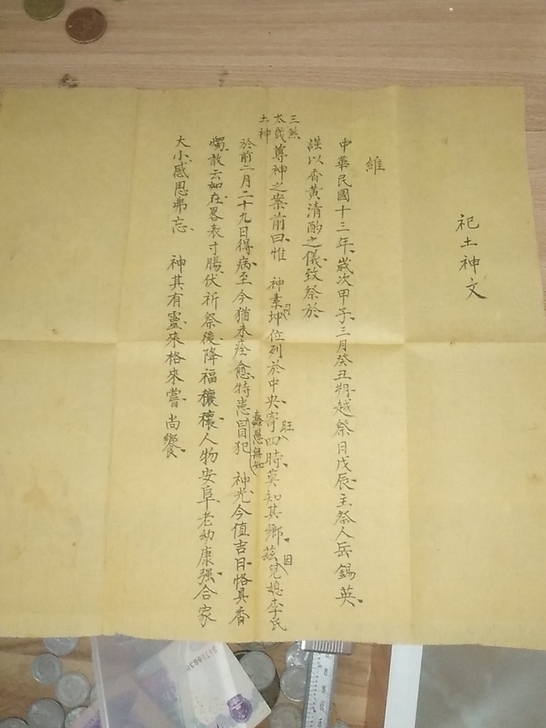 祀土神文
維
中華民國十三年歲次甲子三月癸丑朔越祭日戊辰主祭人岳錫英
謹以香黃清酌之儀致祭於
三煞
太歲
土神
尊神之案前曰惟 神秉坤位列於中央寄旺四時莫知其鄉茲因兒媳李氏
於前二月二十九日得病至今猶未痊愈特患蠢愚無知冒犯 神光今值吉日恪具香
燭敬云如在畧表寸腸伏祈祭後降福穰穰人物安阜老幼康强合家
大小感恩弗忘 神其有靈來格來嘗尚饗